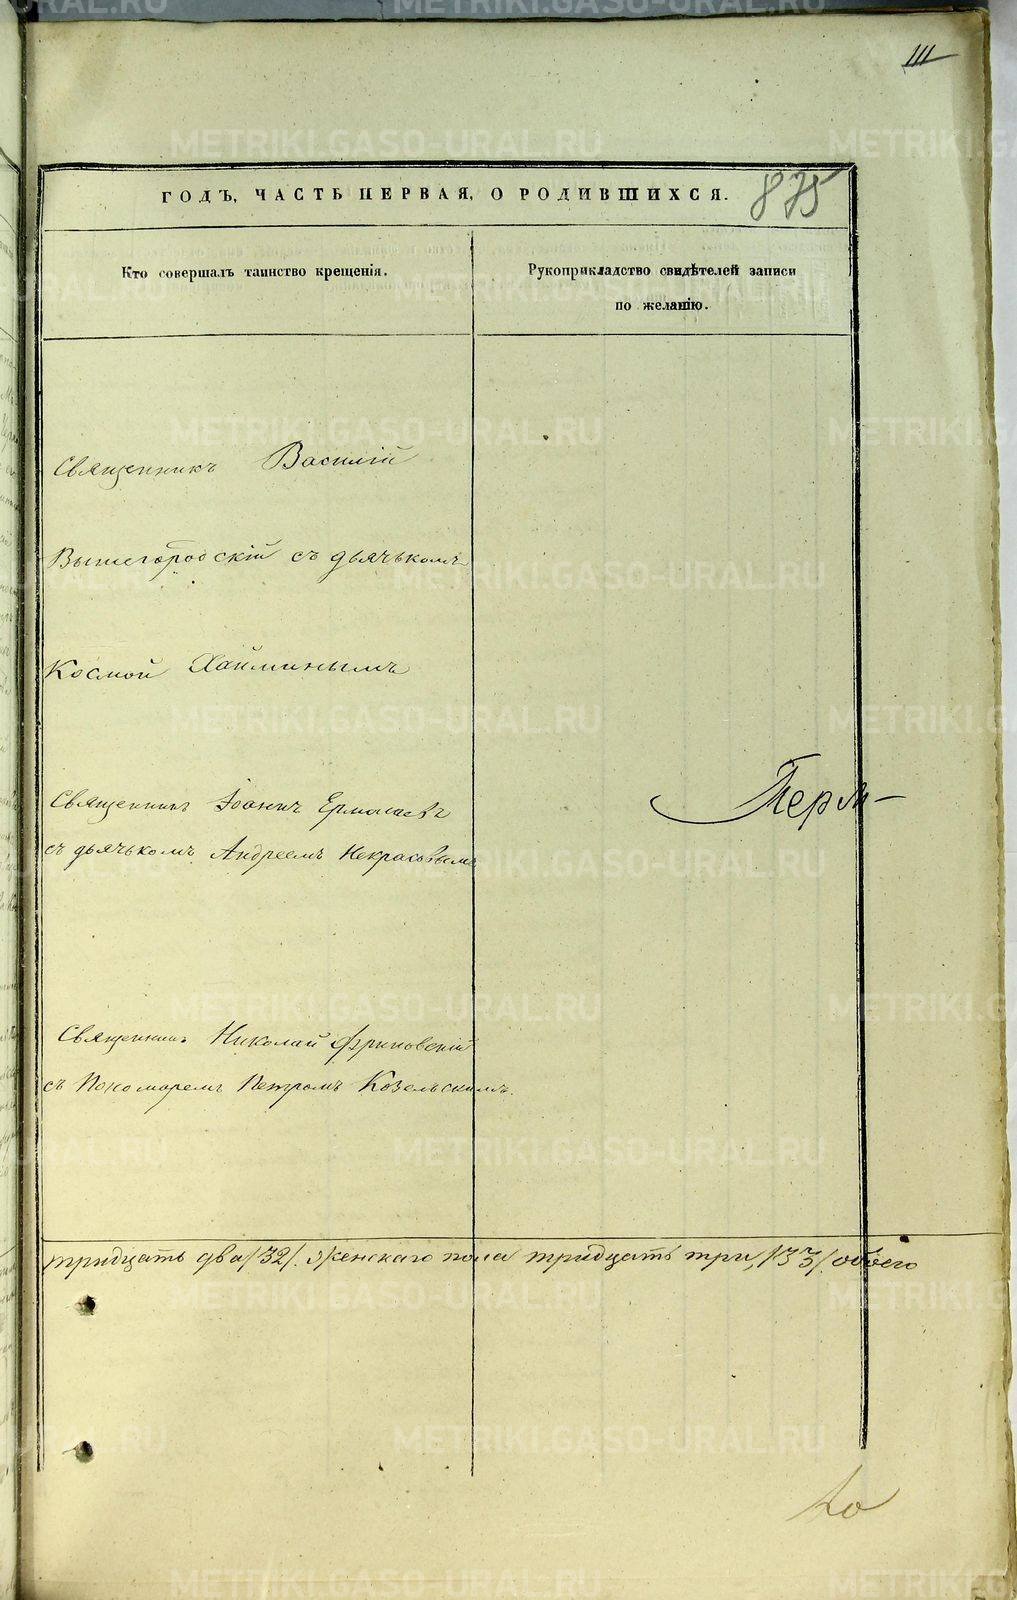 111
ГОДЪ, ЧАСТЬ ПЕРВАЯ, О РОДИВШИХСЯ.
875
Кто совершалъ таинство крещенія.
Рукоприкладство свидѣтелей записи
по желанію.
Священникъ Василій
Вышегородскій съ дьячькомъ
Космой Хайминымъ
Священникъ Іоаннъ Ермолаевъ
съ дьячькомъ Андреемъ Некрасовымъ
Перм-
Священникъ Николай Фриновскій
съ Пономаремъ Петромъ Козельскимъ.
тридцать два /32/. Женскаго пола тридцать три, /33/ обоего
METRIKI.GASO-URAL.RU